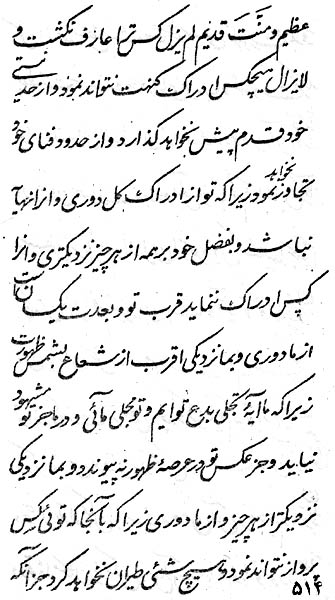 عظیم و منّت قدیم لم یزل کس ترا عارف نگشت و
لایزال هیچکس ادراک کنهت نتواند نمود و از حدّ هستی
خود قدم پیش نخواهد گذارد و از حدود فنای خود
تجاوز نخواهد نمود زیرا که تو از ادراک کل دوری و انرا نهایة
نباشد و بفضل خود بر همه از هر چیز نزدیکتری و انرا
کس ادراک ننماید قرب تو و بعدت یکسان است
از ما دوری و بما نزدیکی اقرب از شعاع بشمس ظهورت
زیرا که ما آیهٔ تجلی بدع توایم و تو مجلی مائی و در ما جز تو مشهود
نیاید و جز عکس تو در عرصهٔ ظهور نه پیوندد و بما نزدیکی
نزدیکتر از هر چیز و از ما دوری زیرا که بآنجا که توئی کس
پرواز نتواند نمود و هیچ شئی طیران نخواهد کرد جز انکه
۵۱۴